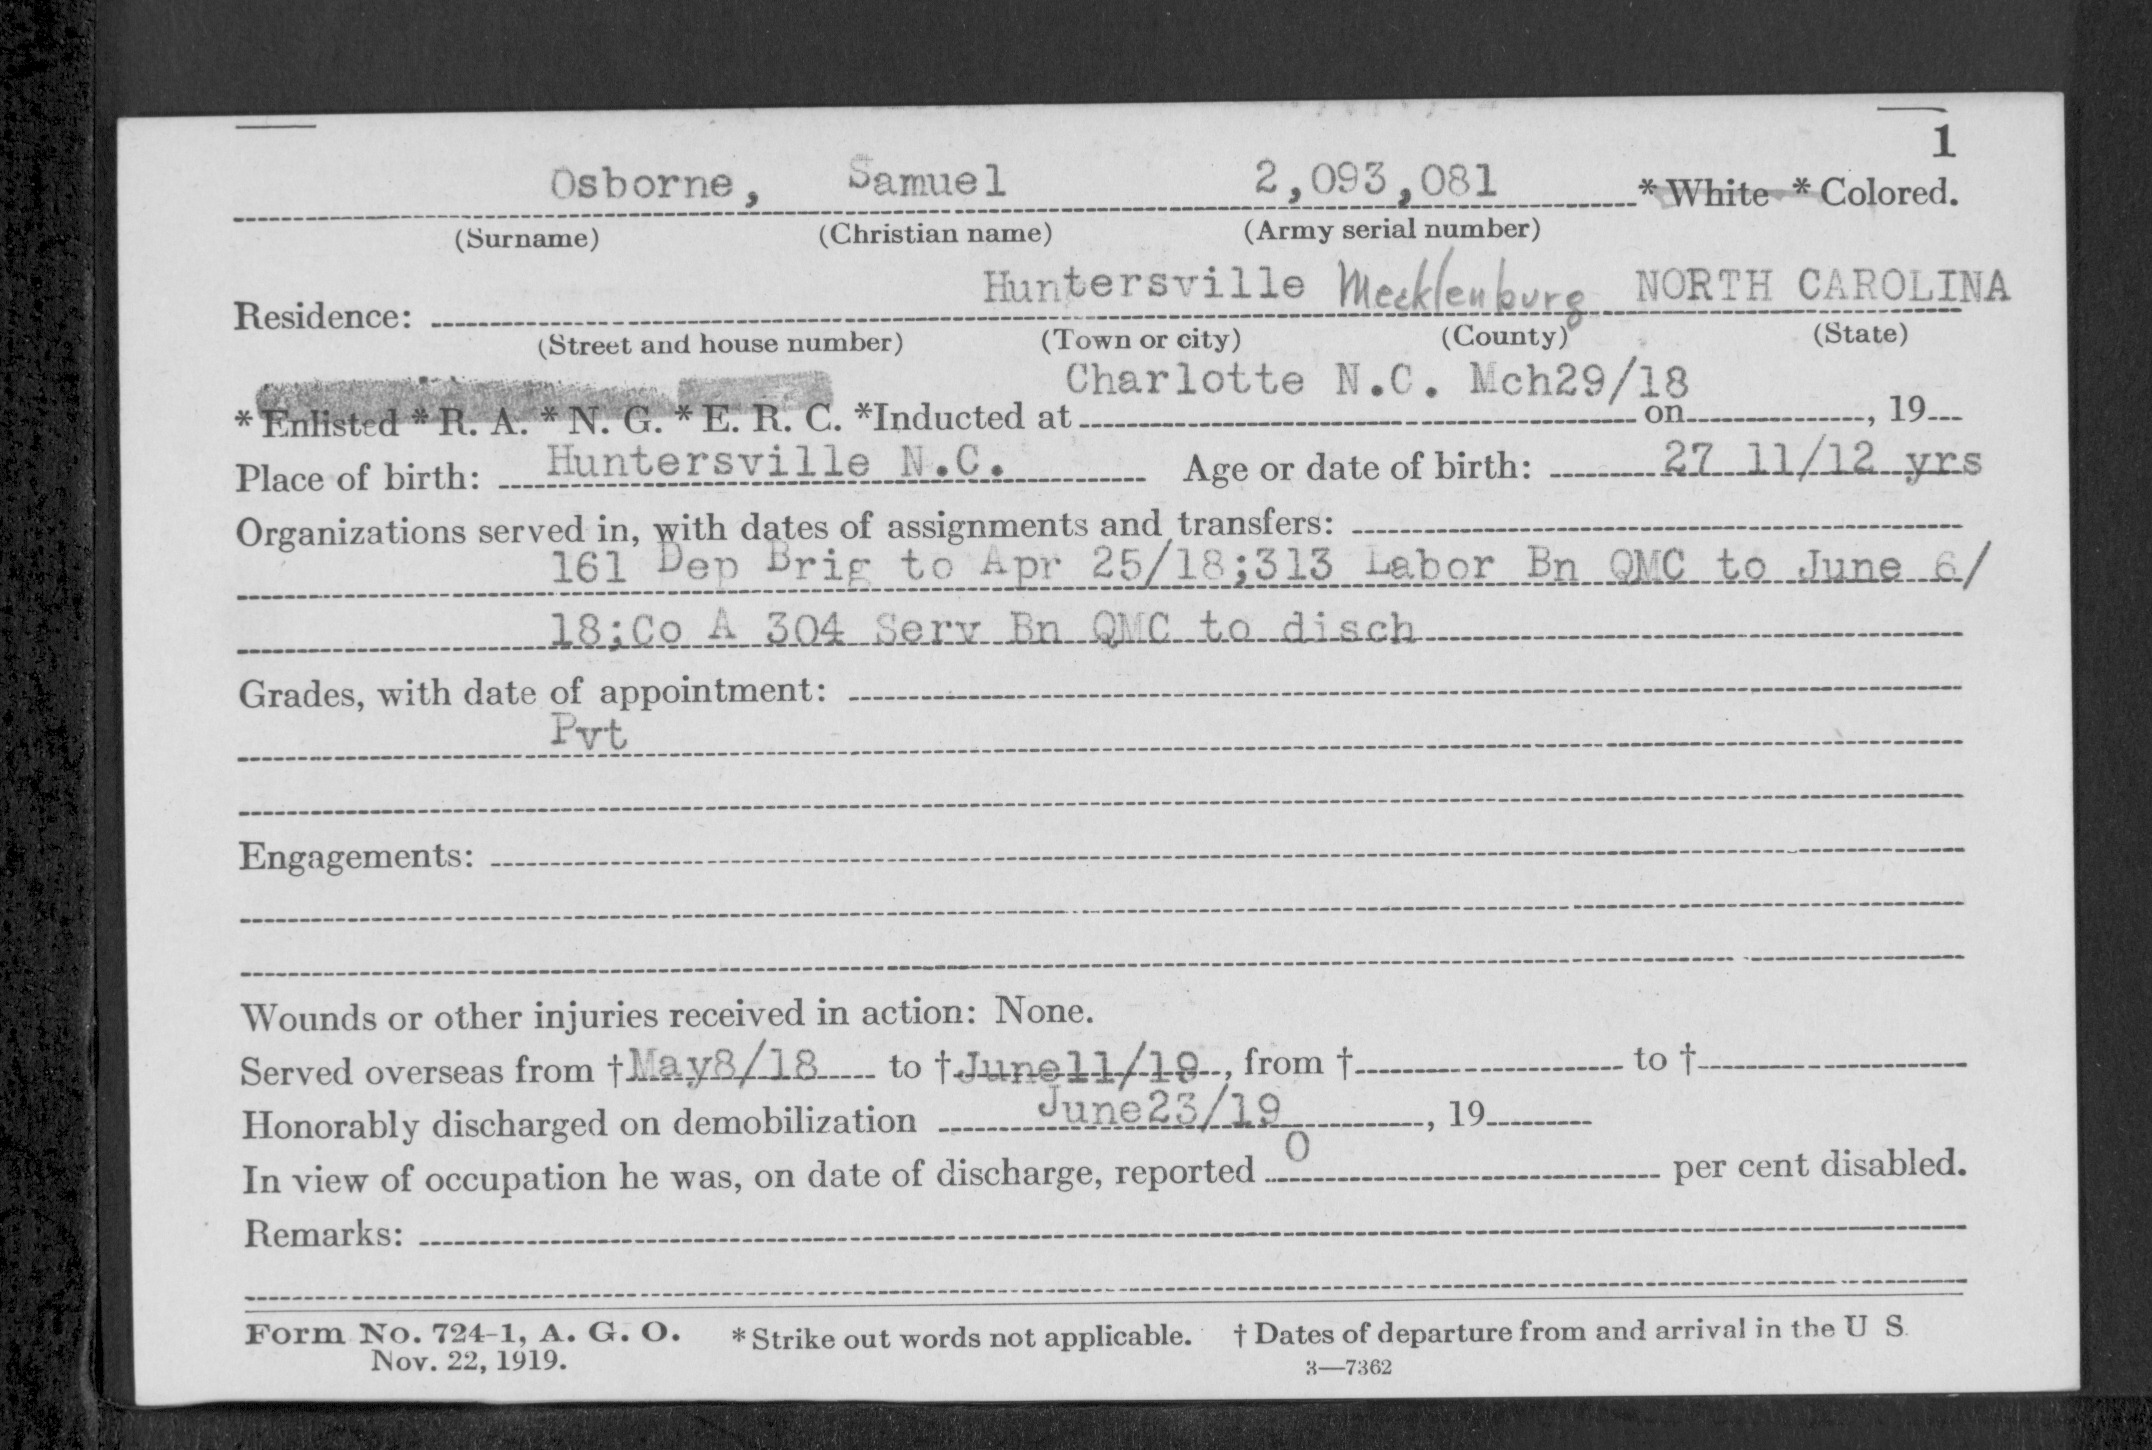 1
Osborne, Samuel 2,093,081 * White * Colored.
(Surname) (Christian name) (Army serial number)
Huntersville Mecklenburg NORTH CAROLINA
Residence:
(Street and house number) (Town or city) (County) (State)
Charlotte N.C. Mch29/18
* Enlisted * R. A. * N. G. * E. R. C. *Inducted at on , 19
Place of birth: Huntersville N.C. Age or date of birth: 27 11/12 yrs
Organizations served in, with dates of assignments and transfers:
161 Dep Brig to Apr 25/18;313 Labor Bn QMC to June 6/
18;Co A 304 Serv Bn QMC to disch
Grades, with date of appointment:
Pvt
Engagements:
Wounds or other injuries received in action: None.
Served overseas from †May8/18 to †June11/19, from † to †
Honorably discharged on demobilization June23/19, 19
In view of occupation he was, on date of discharge, reported 0 per cent disabled.
Remarks:
Form No. 724-1, A. G. O. * Strike out words not applicable. † Dates of departure from and arrival in the U S.
Nov. 22, 1919. 3—7362